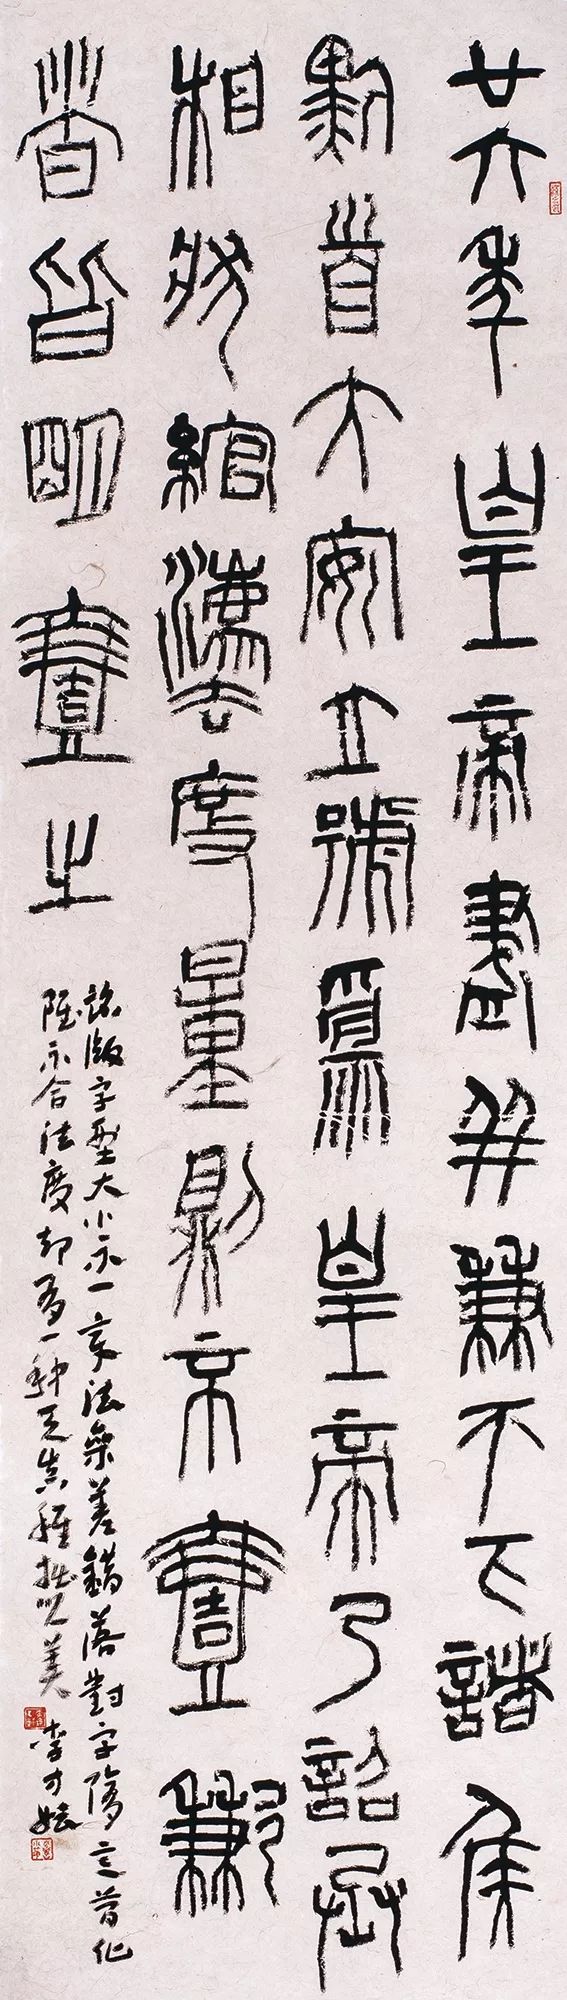 廿六年皇帝盡并兼天下諸侯
黔首大安立號為皇帝乃詔丞
相狀綰灋度量則不壹歉
者皆明壹之
詔版字型大小不一章法參差錯落對字
雖不合法度却有一种天真稚拙之美 李